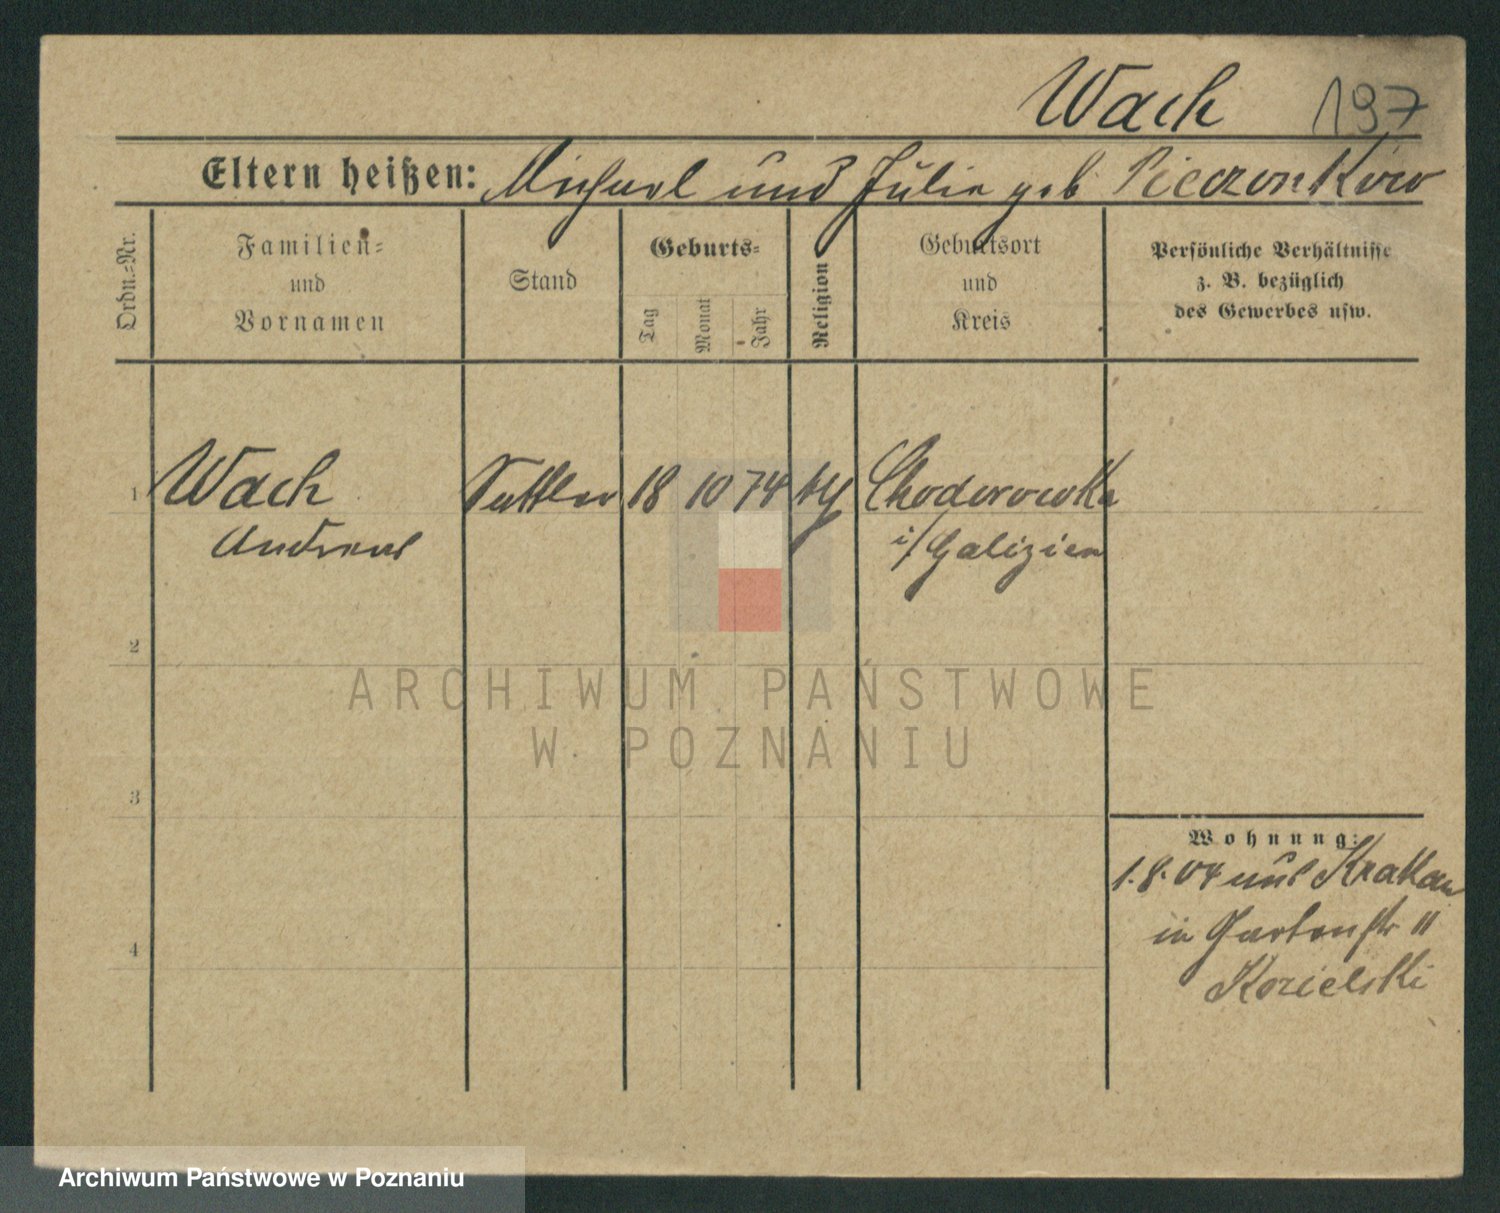 Wach 197
Eltern heißen: Michael und Julie geb Pieczonków
Ordn.-Nr.
Familien- und Vornamen
Stand
Geburts-
Tag
Monat
Jahr
Religion
Geburtsort und Kreis
Persönliche Verhältnisse
z. B. bezüglich
des Gewerbes usw.
1 Wach Sattler 18 10 74 Chodorowka
Andreas i/Galizien
2
ARCHIWUM PAŃSTWOWE
W POZNANIU
3
Wohnung:
1.8.04 aus Krakau
in Gartenstr 11
Kozielski
4
Archiwum Państwowe w Poznaniu